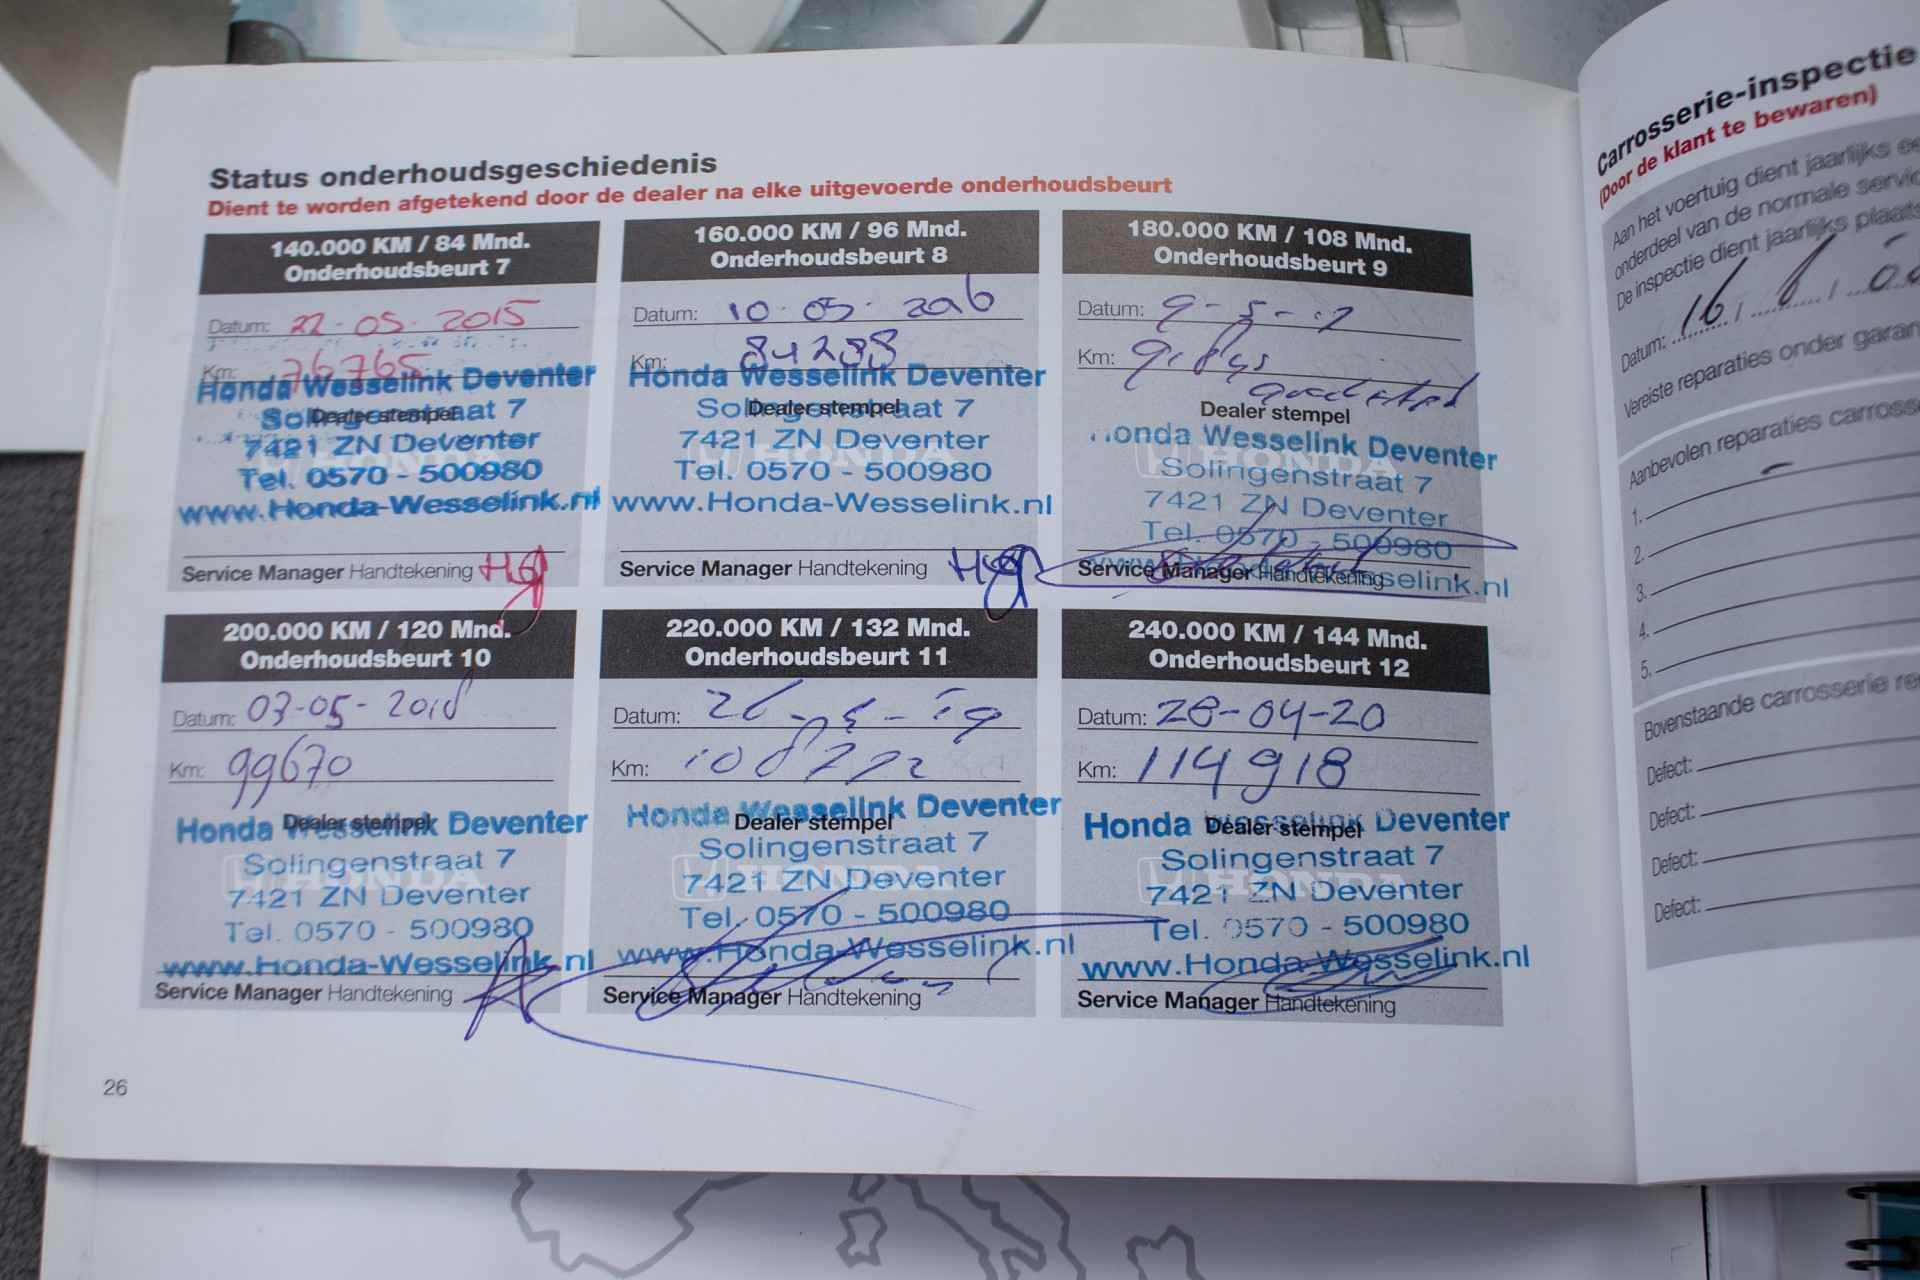 Status onderhoudsgeschiedenis
Dient te worden afgetekend door de dealer na elke uitgevoerde onderhoudsbeurt
140.000 KM / 84 Mnd.
Onderhoudsbeurt 7
Datum: 22-05-2015
Km: 76765
Honda Wesselink Deventer
Dealer stempel
Solingenstraat 7
7421 ZN Deventer
HONDA
Tel. 0570 - 500980
www.Honda-Wesselink.nl
Service Manager Handtekening
160.000 KM / 96 Mnd.
Onderhoudsbeurt 8
Datum: 10-05-2016
Km: 84288
Honda Wesselink Deventer
Dealer stempel
Solingenstraat 7
7421 ZN Deventer
HONDA
Tel. 0570 - 500980
www.Honda-Wesselink.nl
Service Manager Handtekening
180.000 KM / 108 Mnd.
Onderhoudsbeurt 9
Datum: 9-5-17
Km:
Dealer stempel
Honda Wesselink Deventer
HONDA
Solingenstraat 7
7421 ZN Deventer
Tel. 0570 - 500980
www.Honda-Wesselink.nl
Service Manager Handtekening
200.000 KM / 120 Mnd.
Onderhoudsbeurt 10
Datum: 03-05-2018
Km: 99670
Dealer stempel
Honda Wesselink Deventer
Solingenstraat 7
HONDA
7421 ZN Deventer
Tel. 0570 - 500980
www.Honda-Wesselink.nl
Service Manager Handtekening
220.000 KM / 132 Mnd.
Onderhoudsbeurt 11
Datum:
Km:
Honda Wesselink Deventer
Dealer stempel
Solingenstraat 7
HONDA
7421 ZN Deventer
Tel. 0570 - 500980
www.Honda-Wesselink.nl
Service Manager Handtekening
240.000 KM / 144 Mnd.
Onderhoudsbeurt 12
Datum: 28-04-20
Km: 114918
Honda Wesselink Deventer
Dealer stempel
Solingenstraat 7
HONDA
7421 ZN Deventer
Tel. 0570 - 500980
www.Honda-Wesselink.nl
Service Manager Handtekening
26
Carrosserie-inspectie
(Door de klant te bewaren)
Aan het voertuig dient jaarlijks ee
onderdeel van de normale servic
De inspectie dient jaarlijks plaats
Datum: 16 / 8 /
Vereiste reparaties onder garan
Aanbevolen reparaties carrosse
1.
2.
3.
4.
5.
Bovenstaande carrosserie re
Defect:
Defect:
Defect:
Defect: